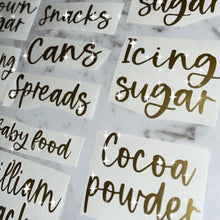 own
Snacks
sugar
Cans
Icing
sugar
Spreads
baby food
Cocoa
powder
illiam